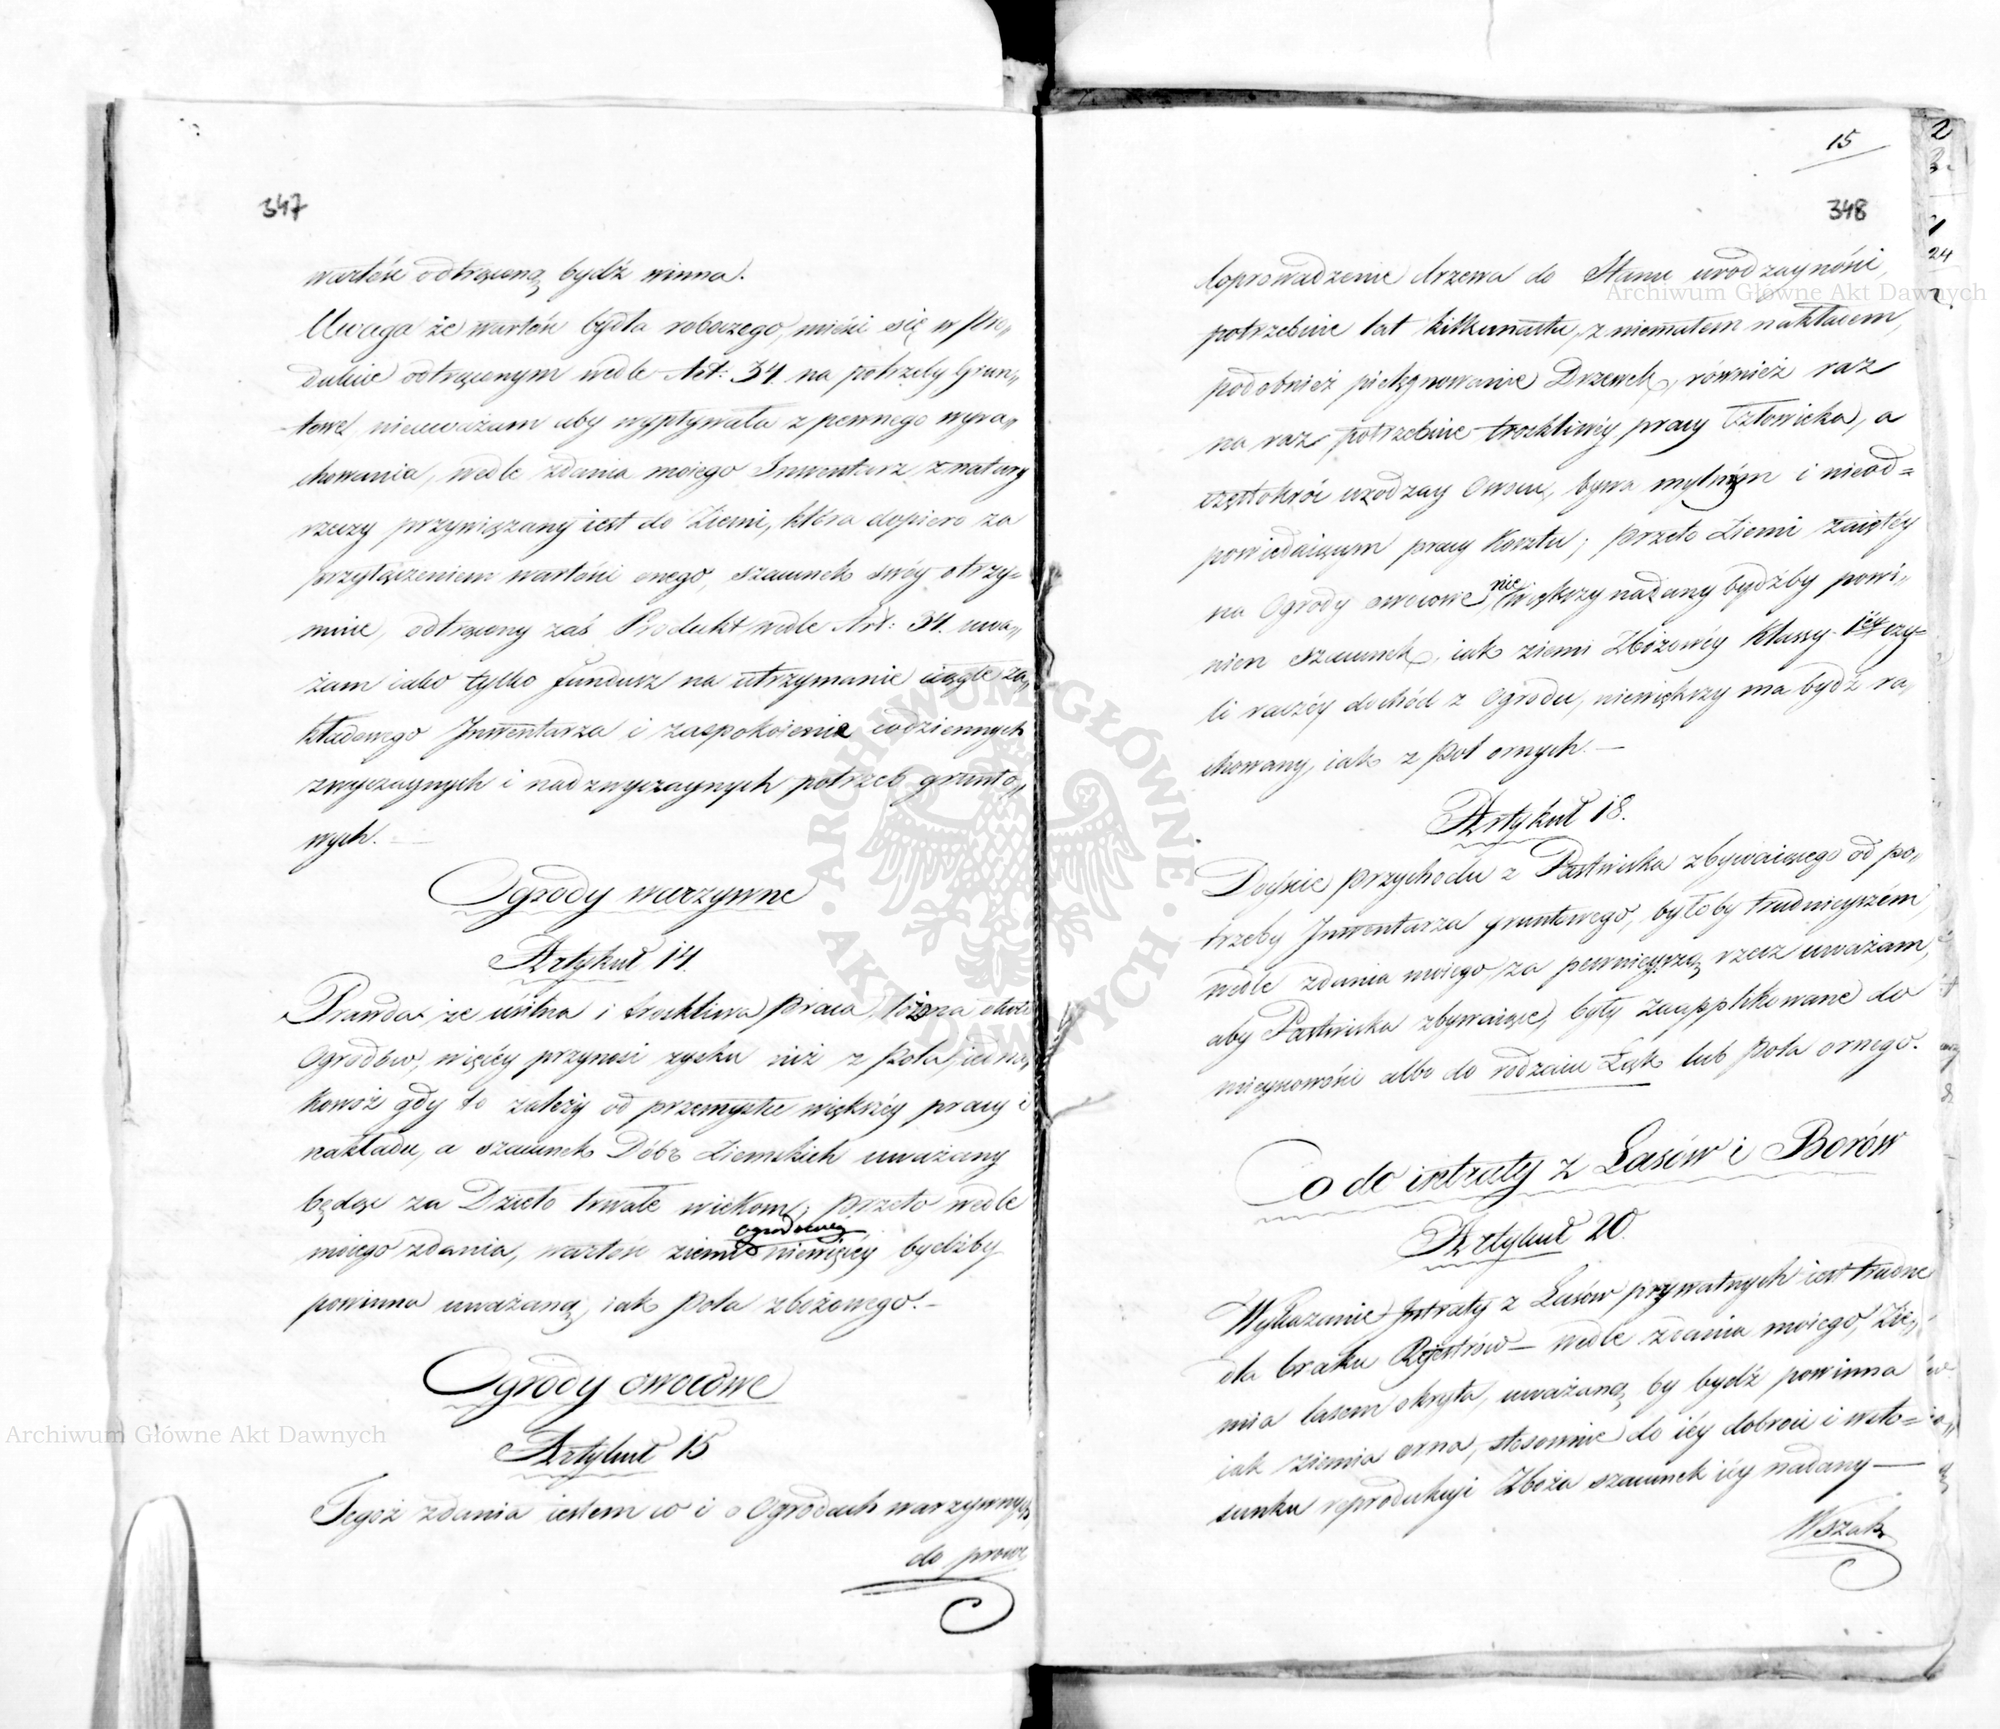 347
wartość odtrąconą bydź winna.
Uwaga że wartość bydła roboczego, mieści się w Pro„
dukcie odtrąconym wedle Art: 34. na potrzeby Grun„
towe, nieuważam aby wypływała z pewnego wyra„
chowania, wedle zdania moiego Inwentarz z natury
rzeczy przywiązany iest do Ziemi, która dopiero za
przyłączeniem wartości onego, szacunek swóy otrzy=
mie, odtrącony zaś Produkt wedle Art: 34. uwa„
żam iako tylko fundusz na utrzymanie ciągle za„
kładowego Inwentarza i zaspokoienie codziennych
zwyczaynych i nadzwyczaynych potrzeb grunto„
wych. —
Ogrody warzywne
Artykuł 14.
Prawda że usilna i troskliwa praca, łożona około
Ogrodów, więcéy przynosi zysku niż z pola, iedna„
kowoż gdy to zależy od przemysłu większéy pracy i
nakładu, a szacunek Dóbr Ziemskich uważany
będąc za Dzieło trwałe wiekom, przeto wedle
moiego zdania, wartość ziemi ogrodowéy niewięcéy bydźby
powinna uważaną, iak pola zbożowego. —
Ogrody owocowe
Artykuł 15
Tegoż zdania iestem co i o Ogrodach warzywnych,
do prow
15
348
doprowadzenie drzewa do Stanu urodzayności,
potrzebuie lat kilkunastu, z niemałem nakładem,
podobnież pielęgnowanie Drzewek, również raz
na raz potrzebuie troskliwéy pracy Człowieka, a
częstokroć urodzay Owocu, bywa mylnym i nieod=
powiedaiącym pracy Kosztu; przeto Ziemi zaiętéy
na Ogrody owocowe, nie większy nadany bydźby powi„
nien szacunek, iak ziemi Zbożowéy Klassy 1éy czy=
li raczéy dochód z Ogrodu, niewiększy ma bydź ra„
chowany, iak z pól ornych. —
Artykuł 18.
Doyście przychodu z Pastwiska zbywaiącego od po„
trzeby Inwentarza gruntowego, byłoby trudnieyszém,
wedle zdania moiego, za pewnieyszą rzecz uważam,
aby Pastwiska zbywaiące, były zaapplikowane do
mieyscowości albo do rodzaiu Łąk lub pola ornego.
Co do intraty z Lasów i Borów
Artykuł 20.
Wykazanie Intraty z Lasów prywatnych iest trudne
dla braku Rejestrów — wedle zdania moiego, Zie„
mia lasem okryta, uważaną by bydź powinna
iak ziemia orna, stosownie do iéy dobroci i wsto=
sunku reprodukcyi Zboża szacunek iéy nadany —
Wszak
Archiwum Główne Akt Dawnych
Archiwum Główne Akt Dawnych
ARCHIWUM GŁÓWNE • AKT DAWNYCH •
2
3.
24